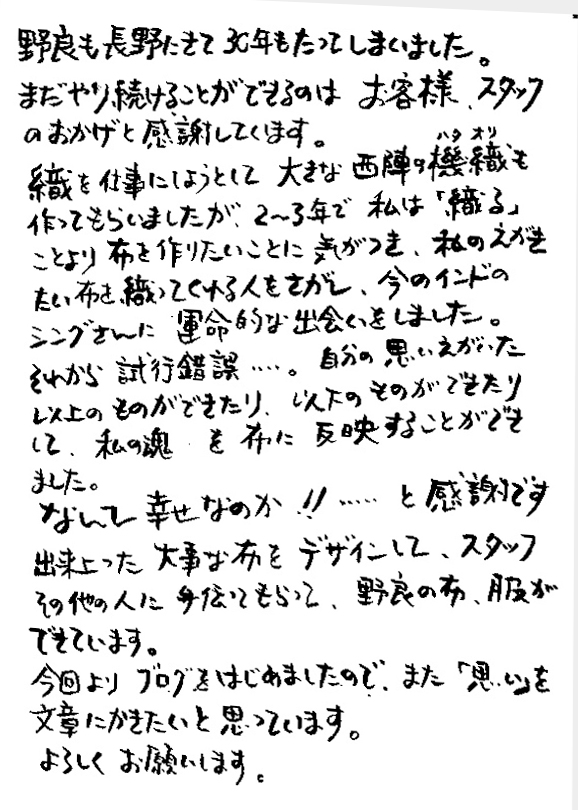 野良も長野にきて30年もたってしまいました。
まだやり続けることができるのは お客様、スタッフ
のおかげと感謝しています。
織を仕事にしようとして 大きな西陣の機織も
ハタ オリ
作ってもらいましたが、2〜3年で 私は「織る」
ことより布を作りたいことに気がつき、私のえがき
たい布を織ってくれる人をさがし、今のインドの
シングさんに 運命的な出会いをしました。
それから 試行錯誤……。自分の思いえがいた
以上のものができたり、以下のものができたり
して、私の魂 を布に反映することができ
ました。
なんて幸せなのか!!……と感謝です
出来上った大事な布をデザインして、スタッフ
その他の人に手伝ってもらって、野良の布、服が
できています。
今回よりブログをはじめましたので、また「思い」を
文章にかきたいと思っています。
よろしくお願いします。